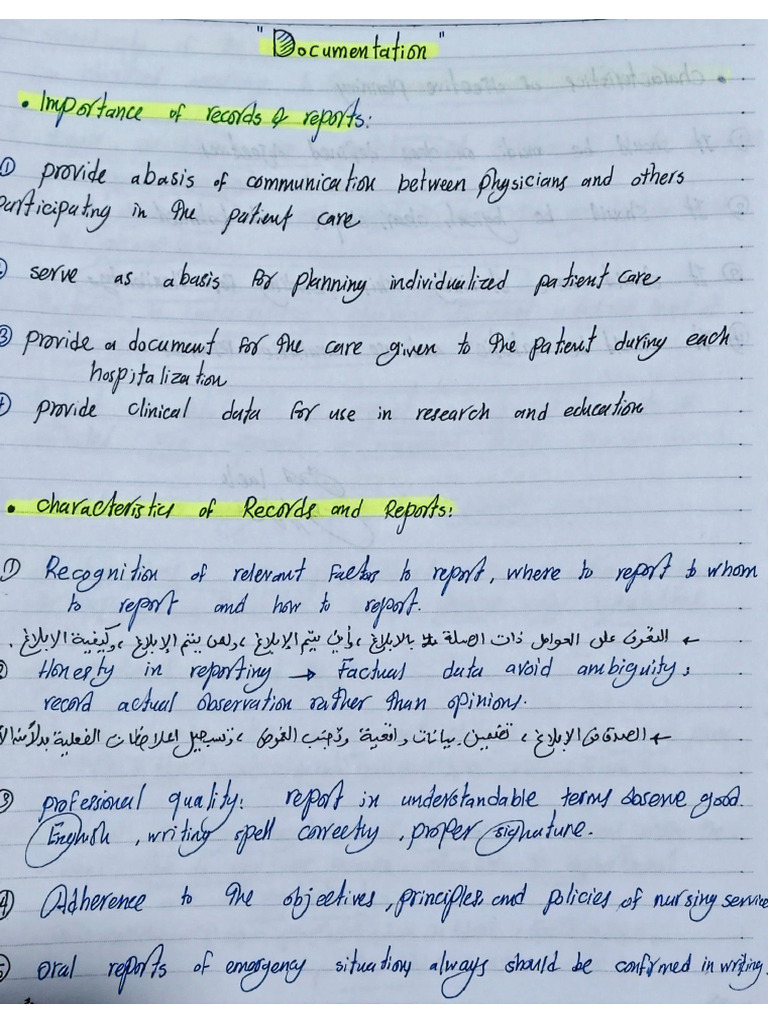 "Documentation"
• Importance of records & reports:
① provide abasis of communication between physicians and others
participating in the patient care
serve as abasis for planning individualized patient care
③ provide a document for the care given to the patient during each
hospitalization
provide clinical data for use in research and education
• characteristics of Records and Reports:
① Recognition of relevant factors to report, where to report to whom
to report and how to report.
← التعرف على العوامل ذات الصلة بالإبلاغ، وأين يتم الإبلاغ، ولمن يتم الإبلاغ، وكيفية الإبلاغ.
Honesty in reporting → Factual data avoid ambiguity;
record actual observation rather than opinions.
← الصدق في الإبلاغ، تضمين بيانات واقعية وتجنب الغموض، وتسجيل الملاحظات الفعلية بدلاً من
③ professional quality: report in understandable terms observe good.
English, writing spell correctly, proper signature.
④ Adherence to the objectives, principles and policies of nursing service
⑤ oral reports of emergency situation, always should be confirmed in writing.